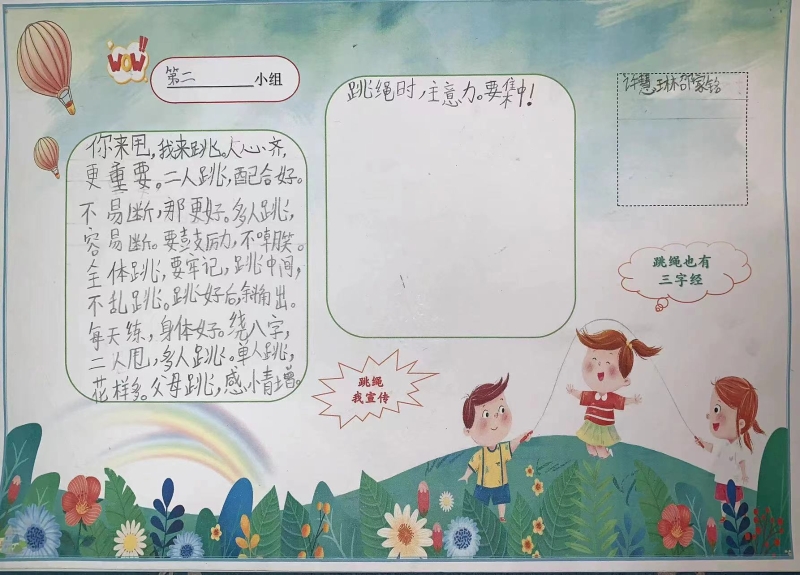 WOW!!
第二 小组
你来甩,我来跳。人心齐,
更重要。二人跳,配合好。
不易断,那更好。多人跳,
容易断。要鼓励,不嘲笑。
全体跳,要牢记,跳中间,
不乱跳。跳好后,斜角出。
每天练,身体好。绕八字,
二人甩,多人跳。单人跳,
花样多。父母跳,感情增。
跳绳时,主意力。要集中!
许慧 林 家铭
跳绳也有
三字经
跳绳
我宣传